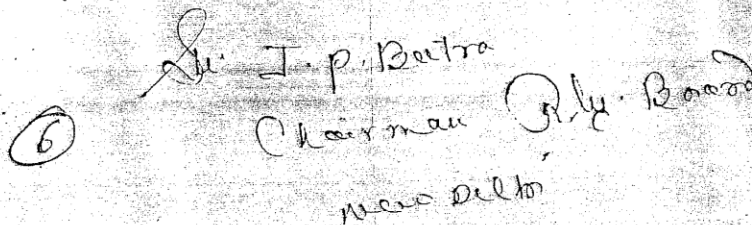 Sh. J. P. Batra
6 Chairman Rly. Board
New Delhi